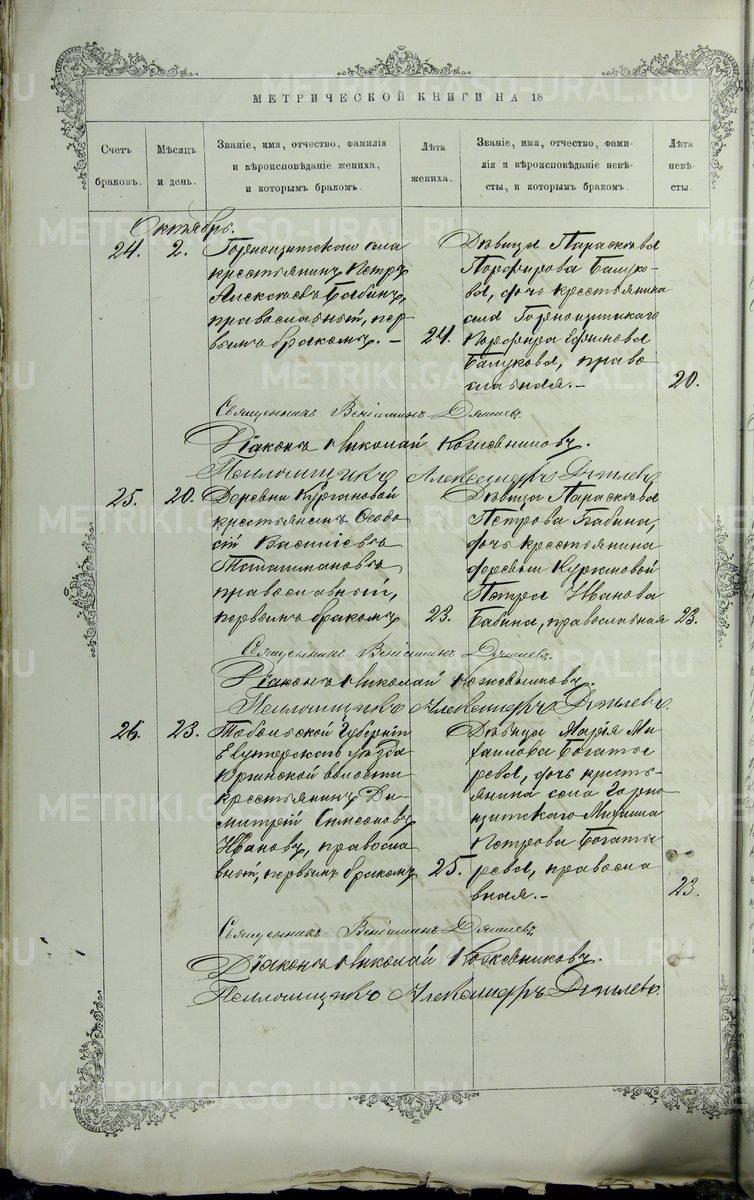 МЕТРИЧЕСКОЙ КНИГИ НА 18
Счетъ
браковъ.
Мѣсяцъ
и день.
Званіе, имя, отчество, фамилія
и вѣроисповѣданіе жениха,
и которымъ бракомъ.
Лѣта
жениха.
Званіе, имя, отчество, фами-
лія и вѣроисповѣданіе невѣ-
сты, и которымъ бракомъ.
Лѣта
невѣ-
сты.
Октябрь.
24.
2.
села
крестьянинъ Петръ
Алексѣевъ Бабинъ,
православный, пер
вымъ бракомъ. —
24.
Дѣвица Параскева
Порфирова Балуко-
ва, дочь крестьянина
села
Порфира Ефимова
Балукова, право
славная. —
20.
Священникъ Веніаминъ
Діаконъ Николай Кожевниковъ.
Псаломщикъ Александръ
25.
20.
Деревни Курганновой
крестьянинъ Ѳеодо
сій Василіевъ
православный,
первымъ бракомъ
23.
Дѣвица Параскева
Петрова Бабина,
дочь крестьянина
деревни
Петра Иванова
Бабина, православная
23.
Священникъ Веніаминъ
Діаконъ Николай Кожевниковъ.
Псаломщикъ Александръ
26.
23.
Тобольской Губерніи
уѣзда
Юргинской волости
крестьянинъ Ди-
митрій Симеоновъ
Ивановъ, правосла
вный, первымъ бракомъ
25.
Дѣвица Марія Ми
хаилова Богаты
рева, дочь кресть-
янина села Горно
щитского Михаила
Петрова Богаты
рева, правосла
вная. —
23.
Священникъ Веніаминъ
Діаконъ Николай Кожевниковъ.
Псаломщикъ Александръ
METRIKI.GASO-URAL.RU